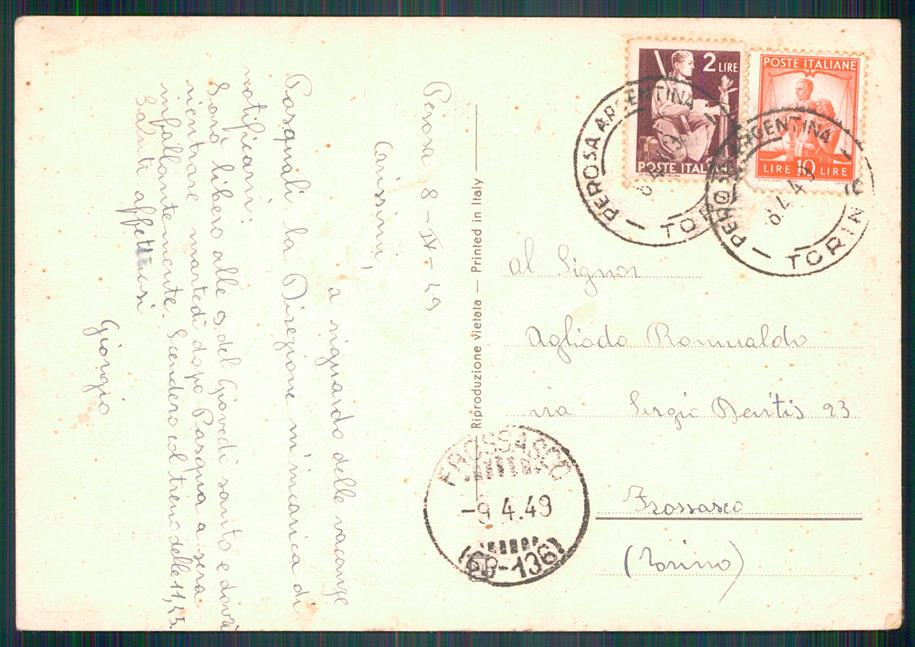 Perosa 8-IV-49
Carissimi,
a riguardo delle vacanze
Pasquali la Direzione m'incarica di
notificarvi:
Sarò libero alle 9 del Giovedì santo e dovrò
rientrare martedì dopo Pasqua a sera
infallantemente. Scenderò col treno delle 11,45.
Saluti affettuosi
Giorgio
Riproduzione Vietata - Printed in Italy
2 LIRE
POSTE ITALIANE
POSTE ITALIANE
LIRE 10 LIRE
PEROSA ARGENTINA
TORINO
PEROSA ARGENTINA
8.4.49
TORINO
al Signor
Agliodo Romualdo
via Sergio 23
Frossasco
(Torino)
FROSSASCO
-9.4.49
(68-136)